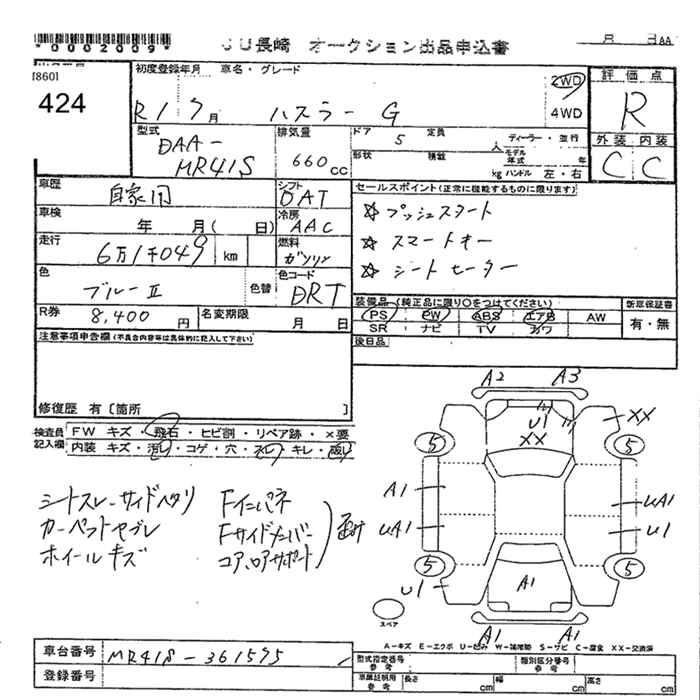 *0002009* JU長崎 オークション出品申込書 月 日AA
18601
424
初度登録年月 車名・グレード 2WD 評価点
R17月 ハスラー G 4WD R
型式 排気量 ドア 5 定員 人 ディーラー・並行 外装 内装
DAA-MR41S 660cc 形状 積載 kg モデル年式 年 ハンドル 左・右 C C
車歴 自家用 シフト DAT セールスポイント(正常に機能するものに限ります)
車検 年 月( 日) 冷房 AAC ☆プッシュスタート
走行 6万1千049 km 燃料 ガソリン ☆スマートキー
色 ブルーⅡ 色替 色コード DRT ☆シートヒーター
R券 8,400円 名変期限 月 日 装備品(純正品に限り○をつけてください) 新車保証書
PS PW ABS エアB AW 有・無
SR ナビ TV カワ
注意事項申告欄(不具合内容等は具体的に記入して下さい) 後日品
修復歴 有〔箇所 〕
検査員記入欄 FW キズ・飛石・ヒビ割・リペア跡・×要
内装 キズ・汚レ・コゲ・穴・スレ・キレ・破レ
A2 A3
U1 XX XX
5 5
A1 UA1
UA1 U1
5 5
U1 A1
A1 A1
シートスレーサイドヘタリ Fインパネ
カーペットヤブレ Fサイドメンバー
ホイールキズ コア、ロアサポート
スペア
A-キズ E-エクボ U-凹み W-補修跡 S-サビ C-腐食 XX-交換済
車台番号 MR41S-361595 型式指定番号 参考 類別区分番号 参考
登録番号 車庫証明用 参考 長さ cm 幅 cm 高さ cm